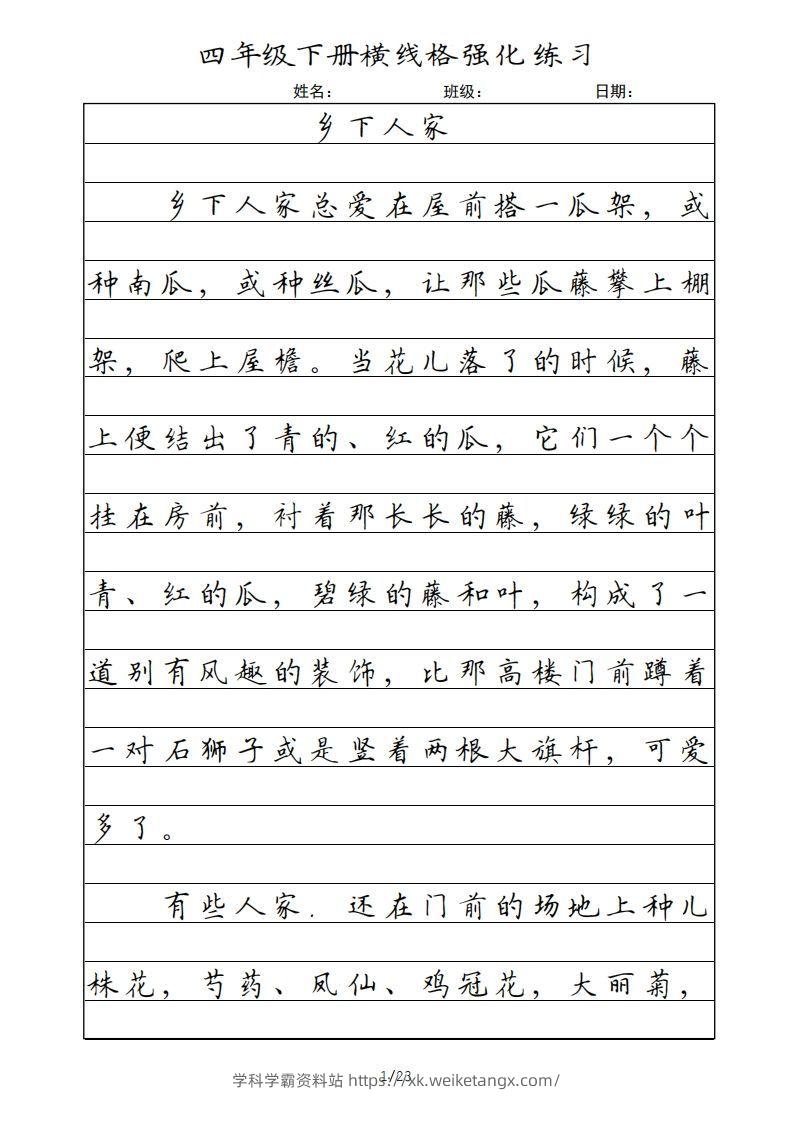 四年级下册横线格强化练习
姓名： 班级： 日期：
乡下人家
乡下人家总爱在屋前搭一瓜架，或
种南瓜，或种丝瓜，让那些瓜藤攀上棚
架，爬上屋檐。当花儿落了的时候，藤
上便结出了青的、红的瓜，它们一个个
挂在房前，衬着那长长的藤，绿绿的叶
青、红的瓜，碧绿的藤和叶，构成了一
道别有风趣的装饰，比那高楼门前蹲着
一对石狮子或是竖着两根大旗杆，可爱
多了。
有些人家．还在门前的场地上种儿
株花，芍药、凤仙、鸡冠花，大丽菊，
1/23
学科学霸资料站 https://xk.weiketangx.com/